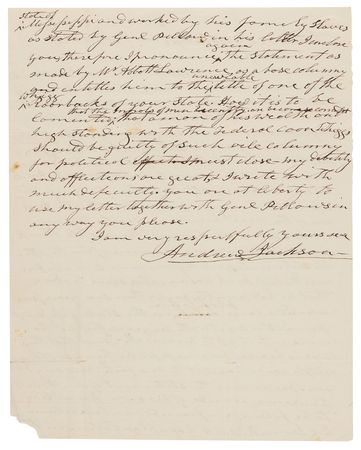 State of
Mississeppi and worked by his fame by Slaves
as Stated by Genl Pillow in his letter I enclose
again
you, therefore I pronounce the Statement as
made by Mr Abott Lawrence a base calumny
and entitles him to the title of one of the
Whigg
Roorbacks of your State. How it is to be
lamented, that a man of his wealth and
high Standing with the Federal
Should be guilty of such vile calumny
for political I must close my debility
and afflictions are great & I write with
much difficulty. You are at liberty to
use my letter together with Genl Pillows in
any way you please.
I am very respectfully yours
Andrew Jackson